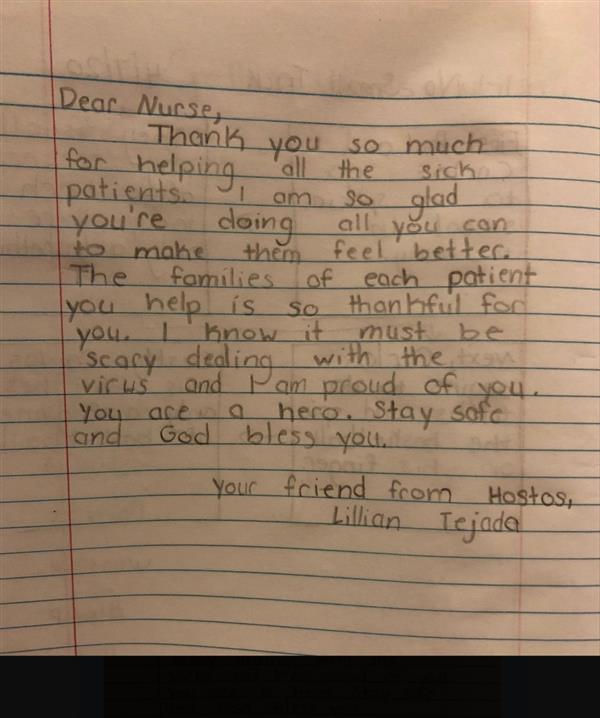 Dear Nurse,
Thank you so much
for helping all the sick
patients. I am so glad
you're doing all you can
to make them feel better.
The families of each patient
you help is so thankful for
you. I know it must be
scary dealing with the
virus and I am proud of you.
You are a hero. Stay safe
and God bless you.
Your friend from Hostos,
Lillian Tejada